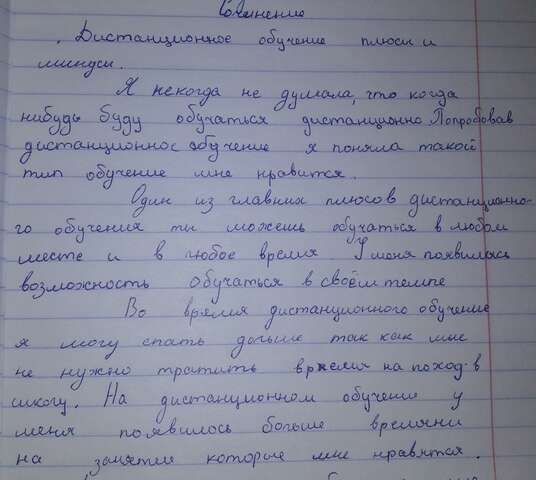 Сочинение
. Дистанционное обучение плюсы и
минусы.
Я некогда не думала, что когда
нибудь буду обучаться дистанционно Попробовав
дистанционнос обучение я поняла такой
тип обучение мне нравится.
Один из главних плюсов дистанционно-
го обучения ты можешь обучаться в любом
месте и в любое время. У меня появилась
возможность обучаться в своём темпе
Во время дистанционного обучение
я могу спать дольше так как мне
не нужно тратить время на поход в
школу. На дистанционном обучение у
меня появилось больше времяни
на занятеи которые мне нравятся.